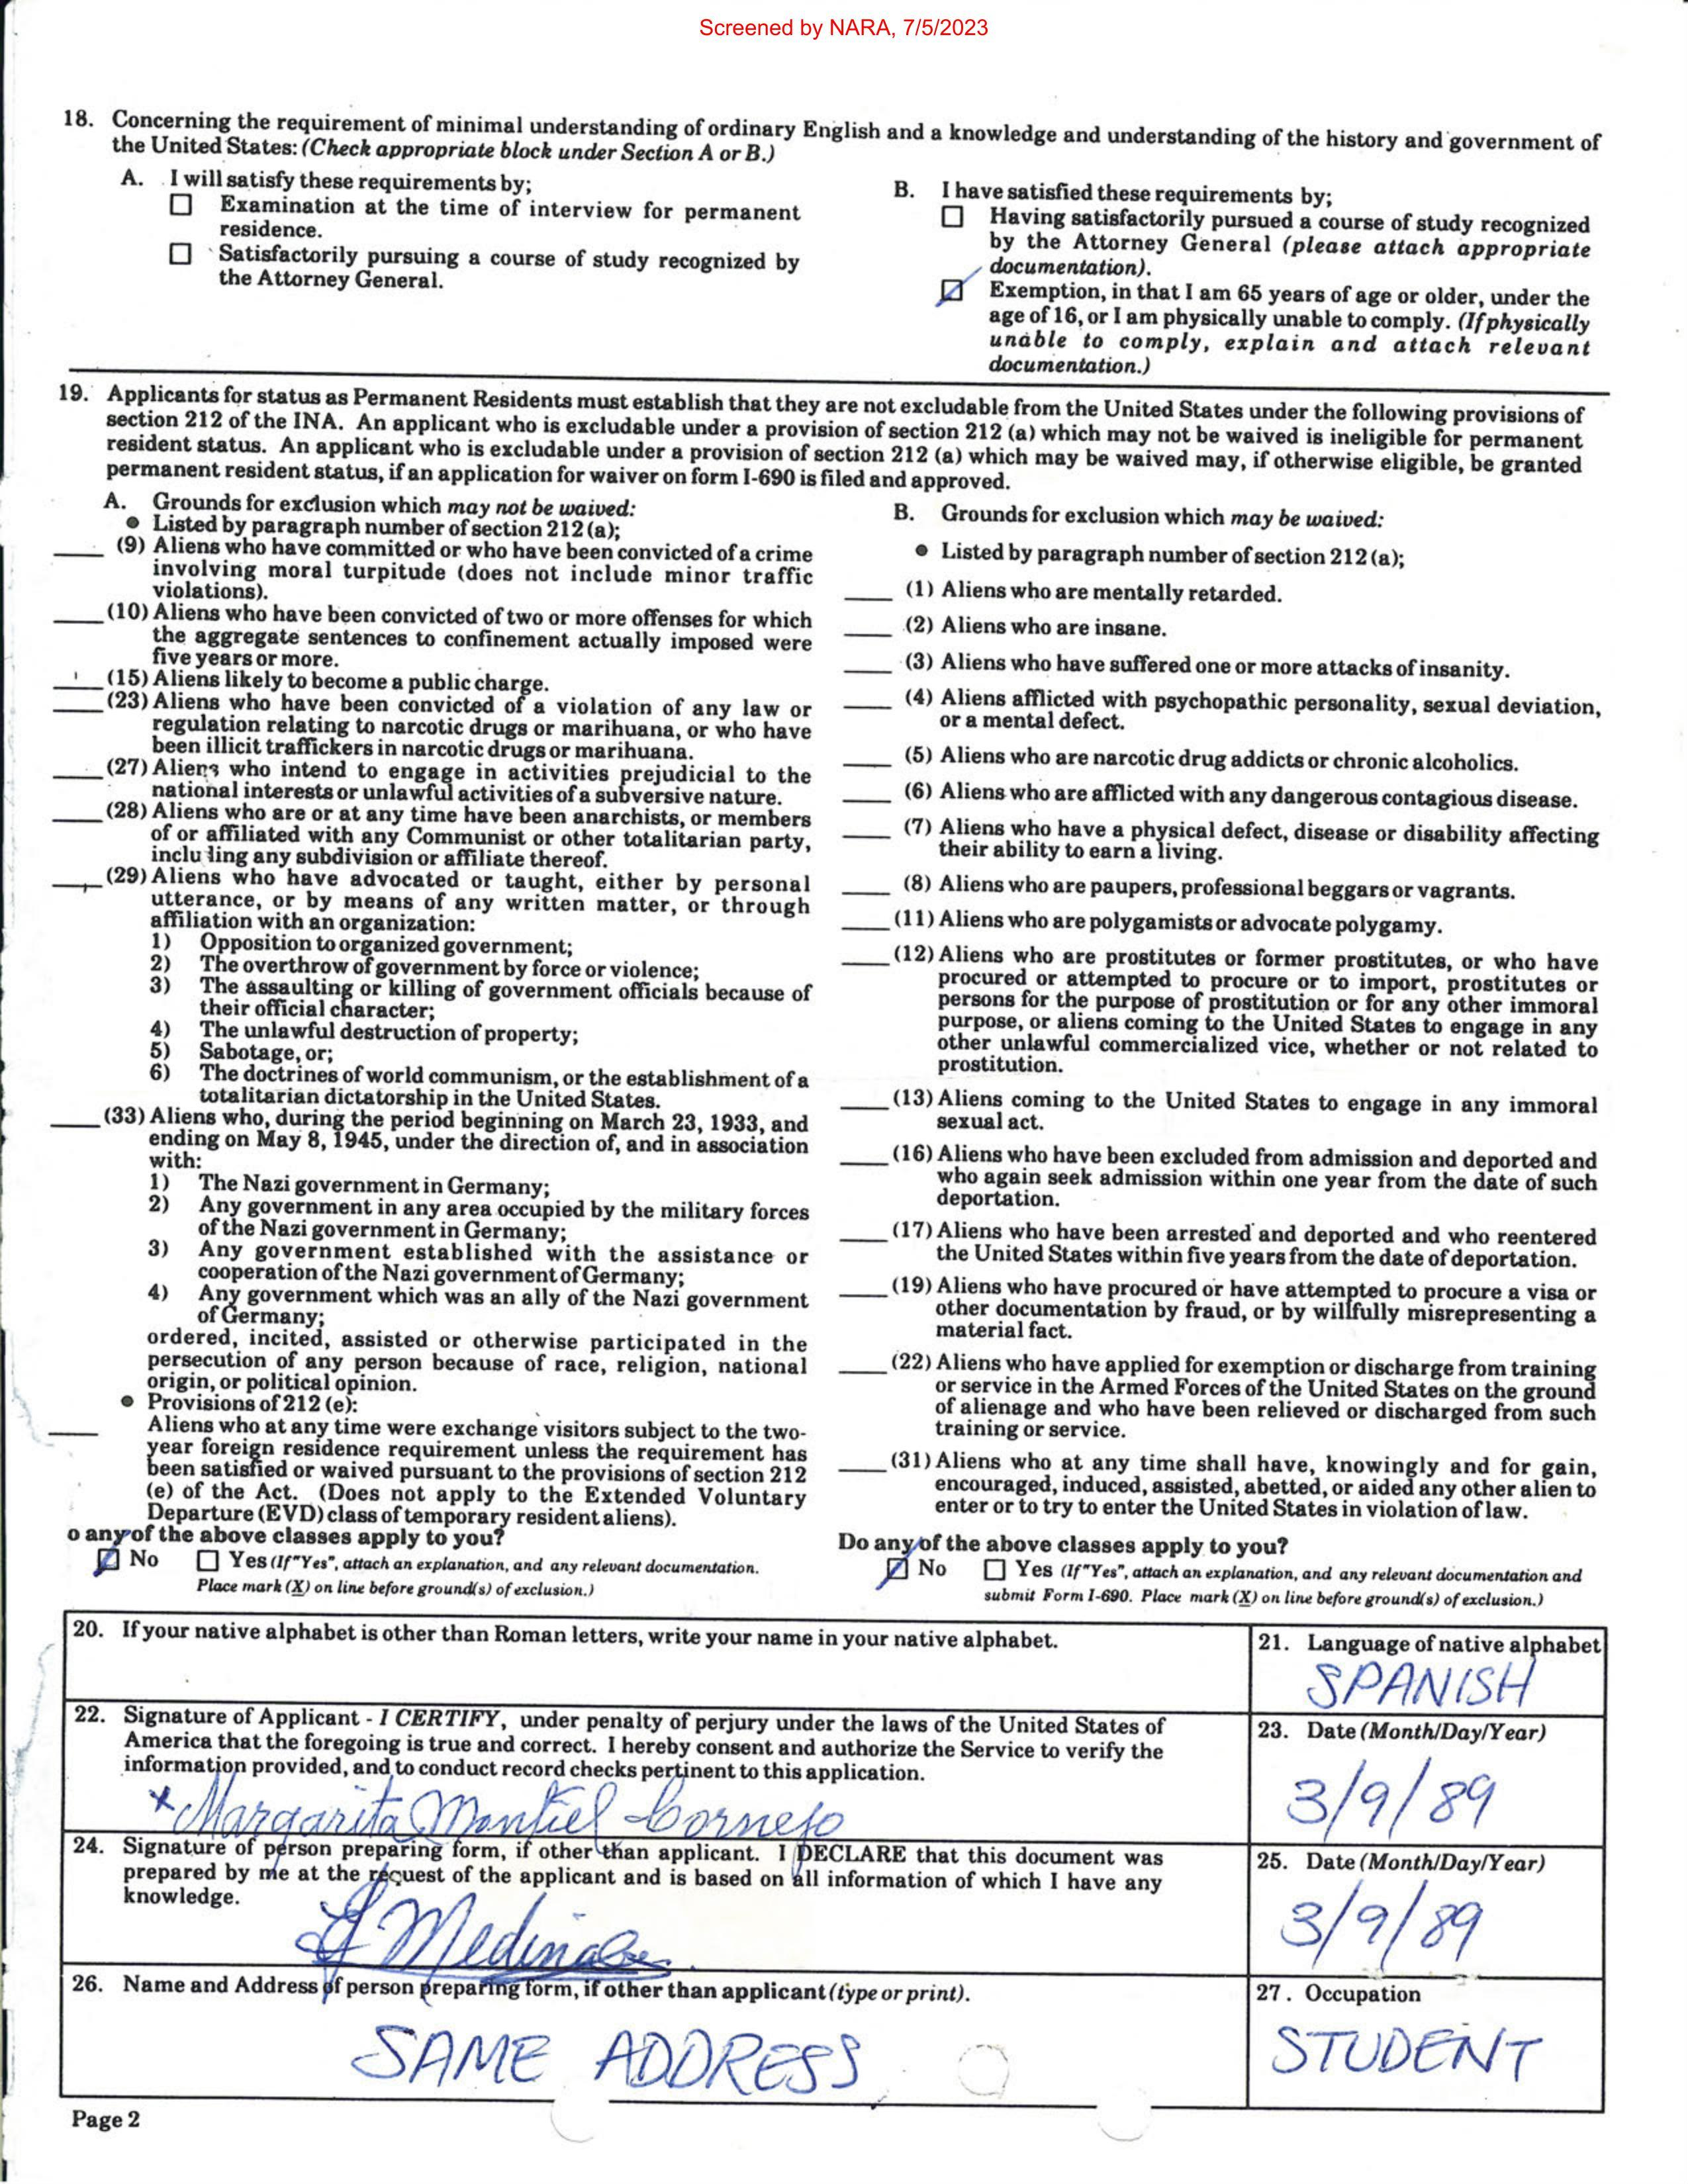 Screened by NARA, 7/5/2023
18. Concerning the requirement of minimal understanding of ordinary English and a knowledge and understanding of the history and government of
the United States: (Check appropriate block under Section A or B.)
A. I will satisfy these requirements by;
Examination at the time of interview for permanent
residence.
Satisfactorily pursuing a course of study recognized by
the Attorney General.
B. I have satisfied these requirements by;
Having satisfactorily pursued a course of study recognized
by the Attorney General (please attach appropriate
documentation).
Exemption, in that I am 65 years of age or older, under the
age of 16, or I am physically unable to comply. (If physically
unable to comply, explain and attach relevant
documentation.)
19. Applicants for status as Permanent Residents must establish that they are not excludable from the United States under the following provisions of
section 212 of the INA. An applicant who is excludable under a provision of section 212 (a) which may not be waived is ineligible for permanent
resident status. An applicant who is excludable under a provision of section 212 (a) which may be waived may, if otherwise eligible, be granted
permanent resident status, if an application for waiver on form I-690 is filed and approved.
A. Grounds for exclusion which may not be waived:
● Listed by paragraph number of section 212 (a);
(9) Aliens who have committed or who have been convicted of a crime
involving moral turpitude (does not include minor traffic
violations).
(10) Aliens who have been convicted of two or more offenses for which
the aggregate sentences to confinement actually imposed were
five years or more.
(15) Aliens likely to become a public charge.
(23) Aliens who have been convicted of a violation of any law or
regulation relating to narcotic drugs or marihuana, or who have
been illicit traffickers in narcotic drugs or marihuana.
(27) Aliens who intend to engage in activities prejudicial to the
national interests or unlawful activities of a subversive nature.
(28) Aliens who are or at any time have been anarchists, or members
of or affiliated with any Communist or other totalitarian party,
including any subdivision or affiliate thereof.
(29) Aliens who have advocated or taught, either by personal
utterance, or by means of any written matter, or through
affiliation with an organization:
1) Opposition to organized government;
2) The overthrow of government by force or violence;
3) The assaulting or killing of government officials because of
their official character;
4) The unlawful destruction of property;
5) Sabotage, or;
6) The doctrines of world communism, or the establishment of a
totalitarian dictatorship in the United States.
(33) Aliens who, during the period beginning on March 23, 1933, and
ending on May 8, 1945, under the direction of, and in association
with:
1) The Nazi government in Germany;
2) Any government in any area occupied by the military forces
of the Nazi government in Germany;
3) Any government established with the assistance or
cooperation of the Nazi government of Germany;
4) Any government which was an ally of the Nazi government
of Germany;
ordered, incited, assisted or otherwise participated in the
persecution of any person because of race, religion, national
origin, or political opinion.
● Provisions of 212 (e):
Aliens who at any time were exchange visitors subject to the two-
year foreign residence requirement unless the requirement has
been satisfied or waived pursuant to the provisions of section 212
(e) of the Act. (Does not apply to the Extended Voluntary
Departure (EVD) class of temporary resident aliens).
o any of the above classes apply to you?
No Yes (If "Yes", attach an explanation, and any relevant documentation.
Place mark (X) on line before ground(s) of exclusion.)
B. Grounds for exclusion which may be waived:
● Listed by paragraph number of section 212 (a);
(1) Aliens who are mentally retarded.
(2) Aliens who are insane.
(3) Aliens who have suffered one or more attacks of insanity.
(4) Aliens afflicted with psychopathic personality, sexual deviation,
or a mental defect.
(5) Aliens who are narcotic drug addicts or chronic alcoholics.
(6) Aliens who are afflicted with any dangerous contagious disease.
(7) Aliens who have a physical defect, disease or disability affecting
their ability to earn a living.
(8) Aliens who are paupers, professional beggars or vagrants.
(11) Aliens who are polygamists or advocate polygamy.
(12) Aliens who are prostitutes or former prostitutes, or who have
procured or attempted to procure or to import, prostitutes or
persons for the purpose of prostitution or for any other immoral
purpose, or aliens coming to the United States to engage in any
other unlawful commercialized vice, whether or not related to
prostitution.
(13) Aliens coming to the United States to engage in any immoral
sexual act.
(16) Aliens who have been excluded from admission and deported and
who again seek admission within one year from the date of such
deportation.
(17) Aliens who have been arrested and deported and who reentered
the United States within five years from the date of deportation.
(19) Aliens who have procured or have attempted to procure a visa or
other documentation by fraud, or by willfully misrepresenting a
material fact.
(22) Aliens who have applied for exemption or discharge from training
or service in the Armed Forces of the United States on the ground
of alienage and who have been relieved or discharged from such
training or service.
(31) Aliens who at any time shall have, knowingly and for gain,
encouraged, induced, assisted, abetted, or aided any other alien to
enter or to try to enter the United States in violation of law.
Do any of the above classes apply to you?
No Yes (If "Yes", attach an explanation, and any relevant documentation and
submit Form I-690. Place mark (X) on line before ground(s) of exclusion.)
20. If your native alphabet is other than Roman letters, write your name in your native alphabet.
21. Language of native alphabet
SPANISH
22. Signature of Applicant - I CERTIFY, under penalty of perjury under the laws of the United States of
America that the foregoing is true and correct. I hereby consent and authorize the Service to verify the
information provided, and to conduct record checks pertinent to this application.
x Margarita Montiel Cornejo
23. Date (Month/Day/Year)
3/9/89
24. Signature of person preparing form, if other than applicant. I DECLARE that this document was
prepared by me at the request of the applicant and is based on all information of which I have any
knowledge.
Medina
25. Date (Month/Day/Year)
3/9/89
26. Name and Address of person preparing form, if other than applicant (type or print).
SAME ADDRESS
27. Occupation
STUDENT
Page 2